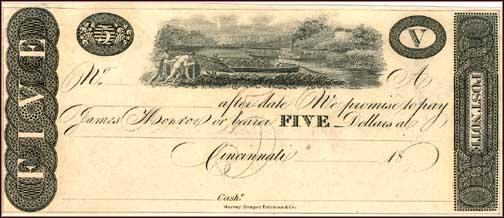 FIVE
5
V
POST NOTE
No A
after date We promise to pay
James Monroe or bearer FIVE Dollars at
Cincinnati 18
Cashr
Murray Draper Fairman & Co.